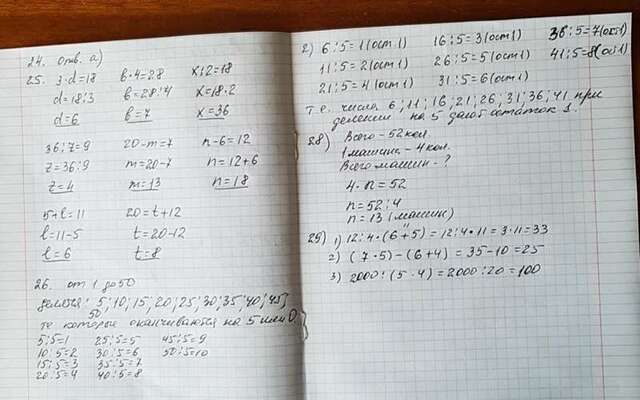 24. отв. а)
25. 3·d=18 в·4=28 x:2=18
d=18:3 в=28:4 x=18·2
d=6 в=7 x=36
36:z=9 20-m=7 n-6=12
z=36:9 m=20-7 n=12+6
z=4 m=13 n=18
5+l=11 20=t+12
l=11-5 t=20-12
l=6 t=8
26. от 1 до 50
делятся: 5;10;15;20;25;30;35;40;45;
50;
те которые оканчиваются на 5 или 0.
5:5=1 25:5=5 45:5=9
10:5=2 30:5=6 50:5=10
15:5=3 35:5=7
20:5=4 40:5=8
2) 6:5=1(ост1) 16:5=3(ост1) 36:5=7(ост1)
11:5=2(ост1) 26:5=5(ост1) 41:5=8(ост1)
21:5=4(ост1) 31:5=6(ост1)
т.е. числа 6;11;16;21;26;31;36;41 при
делении на 5 дают остаток 1.
28) Всего-52кол.
1машина-4кол.
Всего машин-?
4·n=52
n=52:4
n=13(машин)
29) 1) 12:4·(6+5)=12:4·11=3·11=33
2) (7·5)-(6+4)=35-10=25
3) 2000:(5·4)=2000:20=100